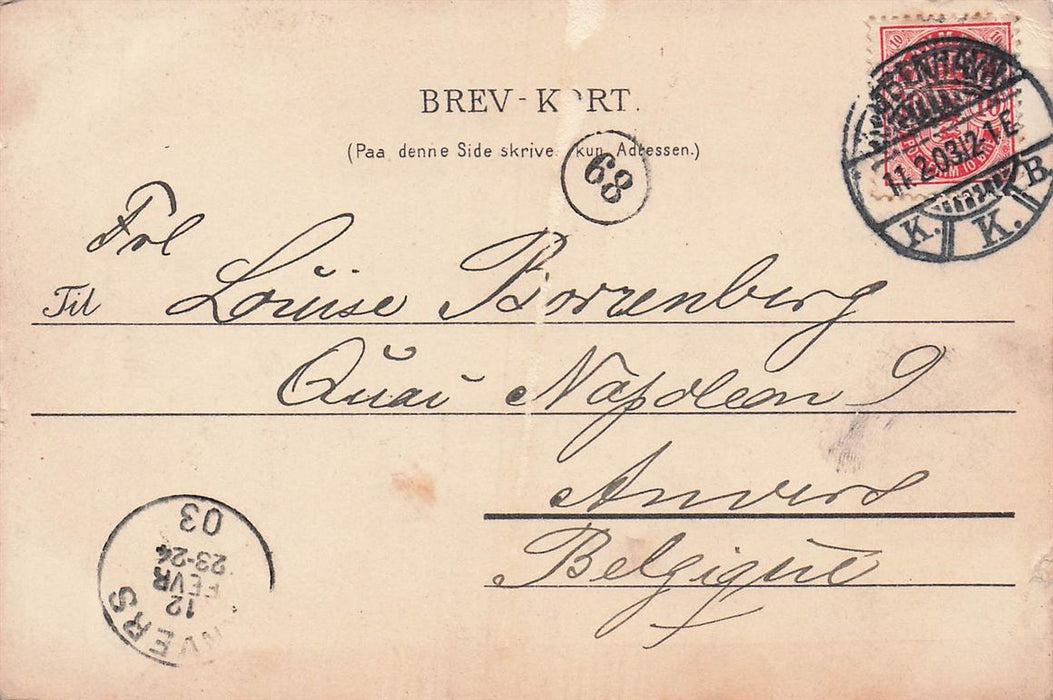 BREV-KORT.
(Paa denne Side skrive kun Adressen.)
68
KJØBENHAVN
11.2.03.12-1 E
K. K. B.
10
10
Frl
Til Louise Borrenberg
Quai Napoleon 9
Anvers
Belgique
ANVERS
12
FEVR
23-24
03